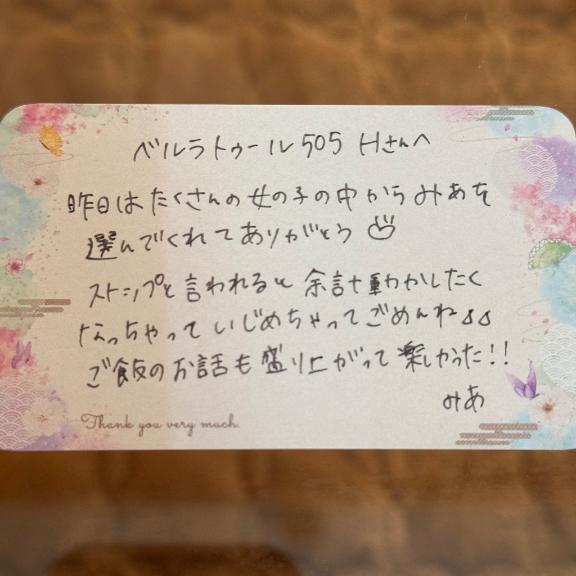 ベルラトゥール505 Hさんへ
昨日はたくさんの女の子の中からみあを
選んでくれてありがとう
ストップと言われると余計動かしたく
なっちゃっていじめちゃってごめんね
ご飯のお話も盛り上がって楽しかった!!
みあ
Thank you very much.